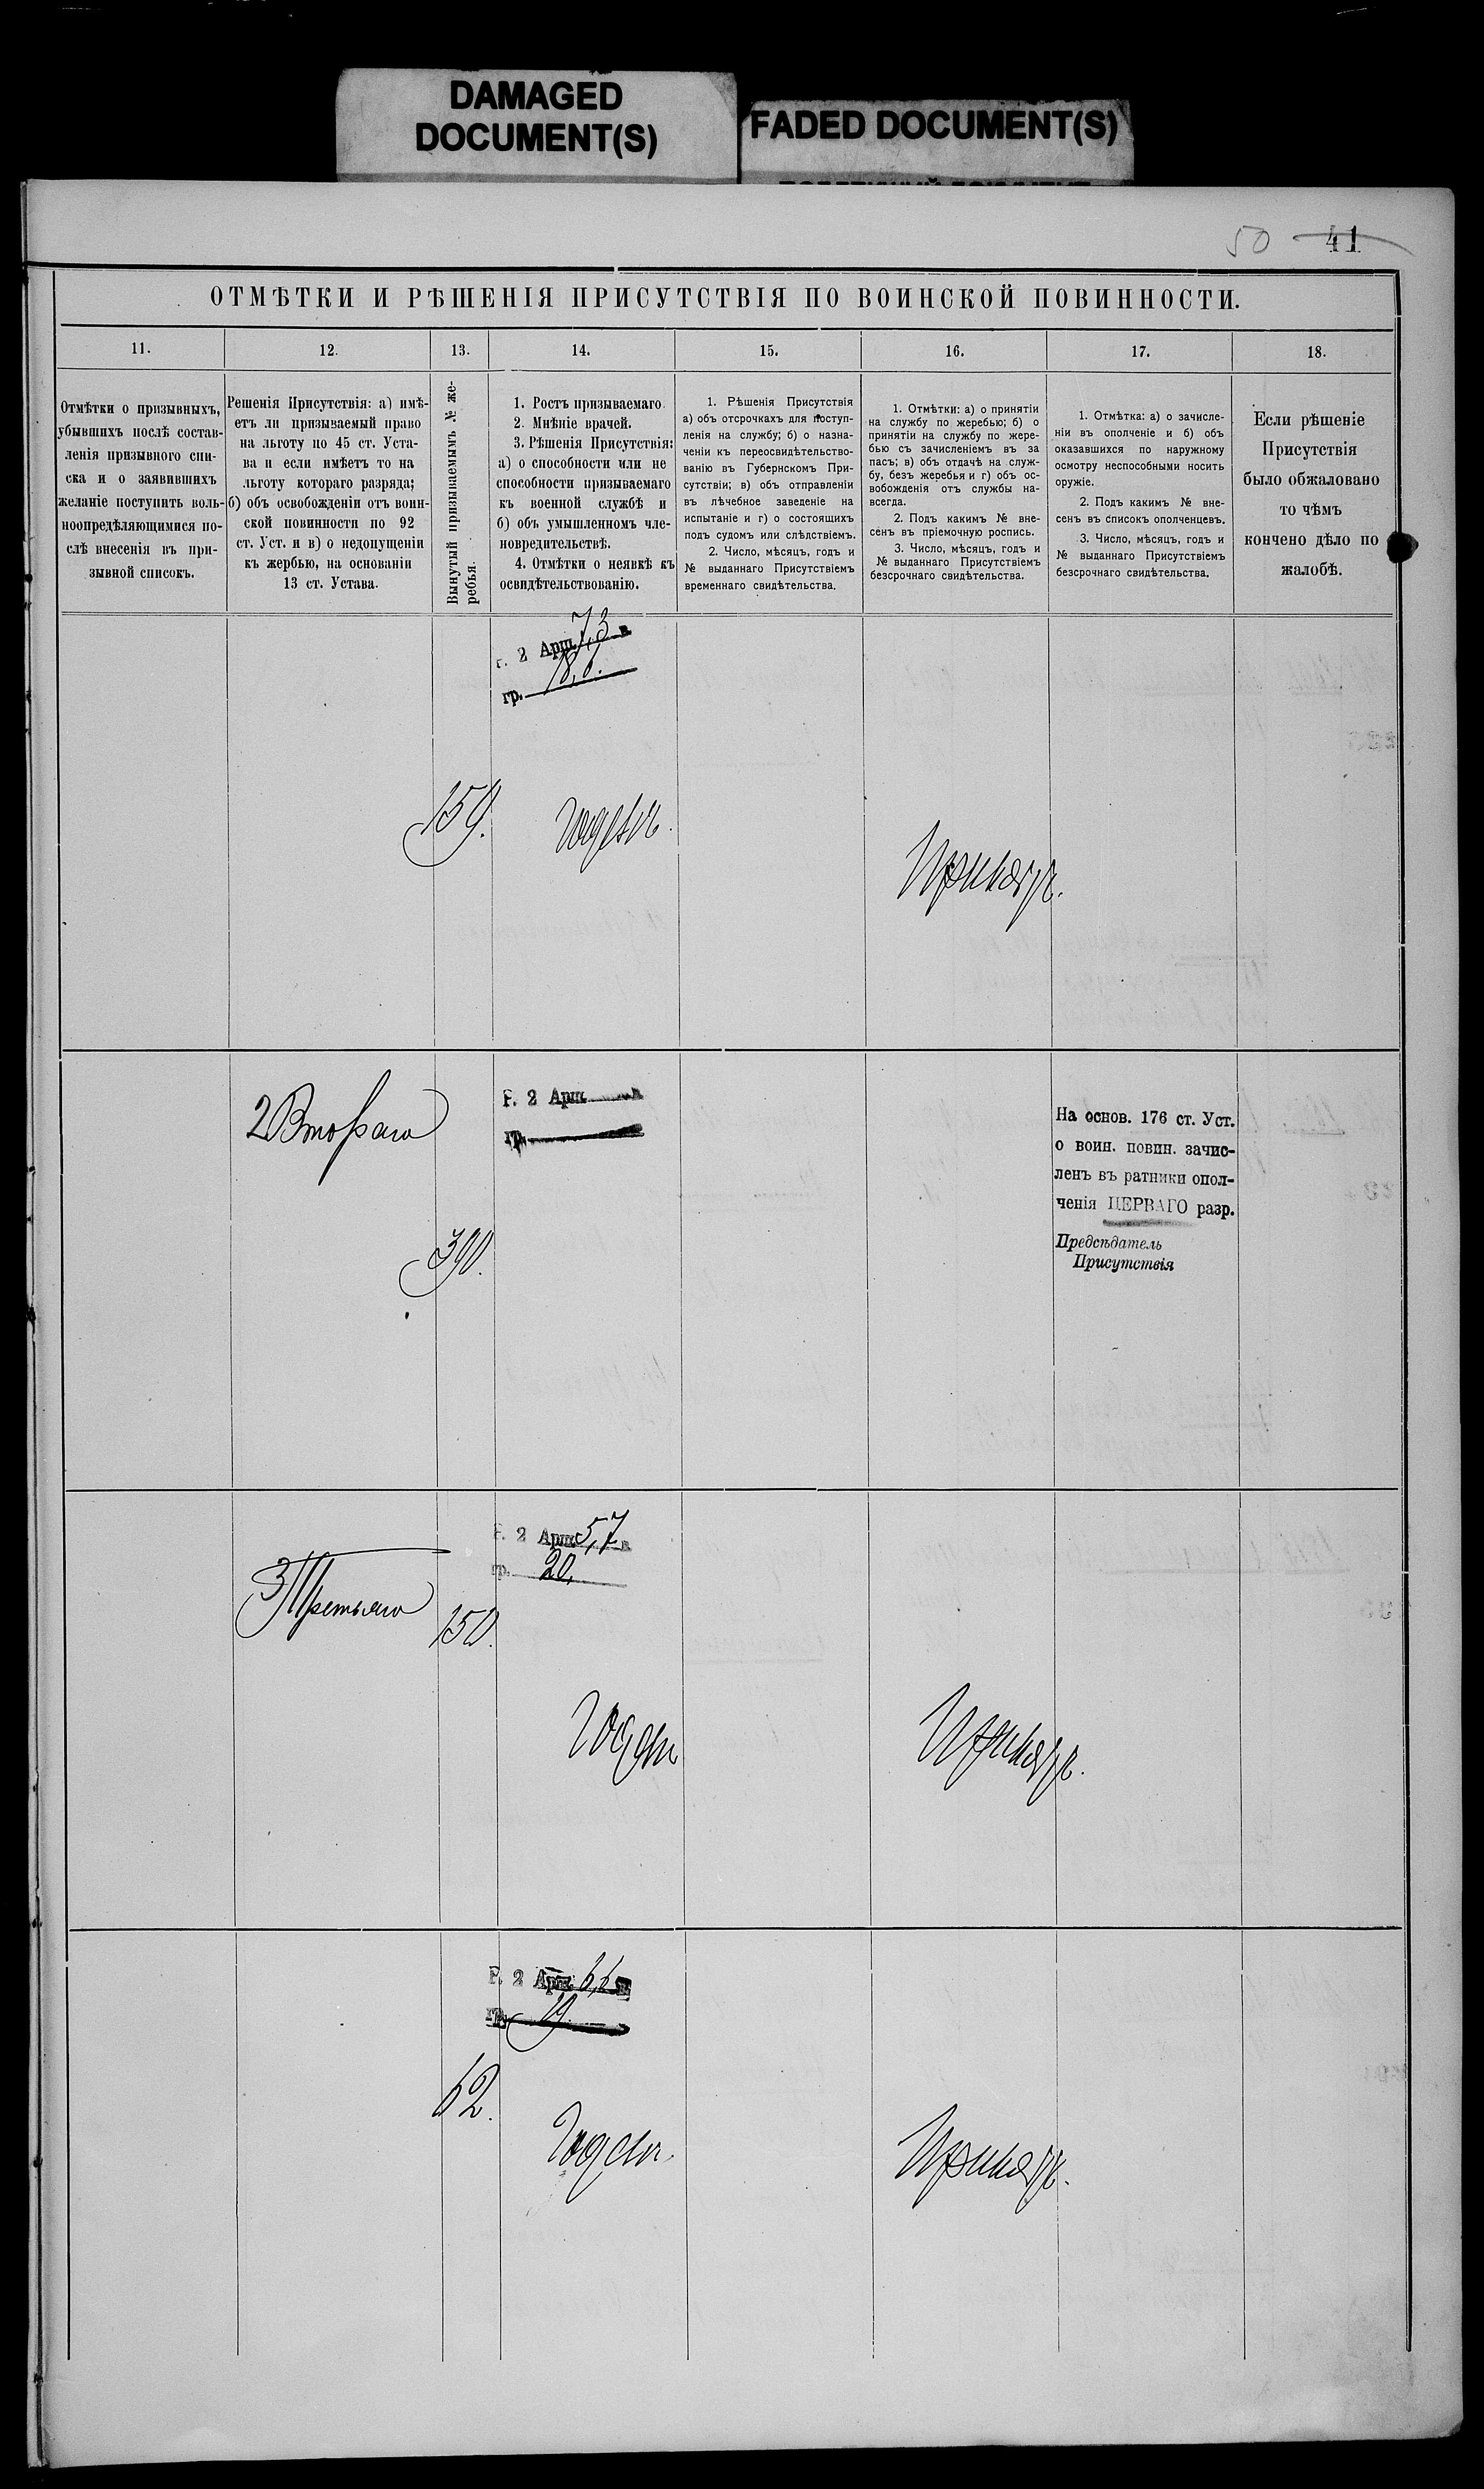 DAMAGED
DOCUMENT(S)
FADED DOCUMENT(S)
50 41
ОТМѢТКИ И РѢШЕНІЯ ПРИСУТСТВІЯ ПО ВОИНСКОЙ ПОВИННОСТИ.
11.
12.
13.
14.
15.
16.
17.
18.
Отмѣтки о призывныхъ,
убывшихъ послѣ состав-
ленія призывного спи-
ска и о заявившихъ
желаніе поступить воль-
ноопредѣляющимися по-
слѣ внесенія въ при-
зывной списокъ.
Решенія Присутствія: а) имѣ-
етъ ли призываемый право
на льготу по 45 ст. Уста-
ва и если имѣетъ то на
льготу котораго разряда;
б) объ освобожденіи отъ воин-
ской повинности по 92
ст. Уст. и в) о недопущеніи
къ жербью, на основаніи
13 ст. Устава.
Вынутый призываемымъ № же-
ребья.
1. Ростъ призываемаго.
2. Мнѣніе врачей.
3. Рѣшенія Присутствія:
а) о способности или не
способности призываемаго
къ военной службѣ и
б) объ умышленномъ чле-
новредительствѣ.
4. Отмѣтки о неявкѣ къ
освидѣтельствованію.
1. Рѣшенія Присутствія
а) объ отсрочкахъ для поступ-
ленія на службу; б) о назна-
ченіи къ переосвидѣтельство-
ванію въ Губернскомъ При-
сутствіи; в) объ отправленіи
въ лѣчебное заведеніе на
испытаніе и г) о состоящихъ
подъ судомъ или слѣдствіемъ.
2. Число, мѣсяцъ, годъ и
№ выданнаго Присутствіемъ
временнаго свидѣтельства.
1. Отмѣтки: а) о принятіи
на службу по жеребью; б) о
принятіи на службу по жере-
бью съ зачисленіемъ въ за
пасъ; в) объ отдачѣ на служ-
бу, безъ жеребья и г) объ ос-
вобожденія отъ службы на-
всегда.
2. Подъ какимъ № вне-
сенъ въ пріемочную роспись.
3. Число, мѣсяцъ, годъ и
№ выданнаго Присутствіемъ
безсрочнаго свидѣтельства.
1. Отмѣтка: а) о зачисле-
ніи въ ополченіе и б) объ
оказавшихся по наружному
осмотру неспособными носить
оружіе.
2. Подъ какимъ № вне-
сенъ въ списокъ ополченцевъ.
3. Число, мѣсяцъ, годъ и
№ выданнаго Присутствіемъ
безсрочнаго свидѣтельства.
Если рѣшеніе
Присутствія
было обжаловано
то чѣмъ
кончено дѣло по
жалобѣ.
г. 2 Арш. 7,3 в
гр. 18,8.
159.
годенъ.
Принятъ.
2 Втораго
Р. 2 Арш. в
гр.
390.
На основ. 176 ст. Уст.
о воин. повин. зачис-
ленъ въ ратники опол-
ченія ПЕРВАГО разр.
Предсѣдатель
Присутствія
Р. 2 Арш. 5,7 в
гр. 20,
3 Третьяго
150.
Годенъ
Принятъ.
Р. 2 Арш. 6,6 в
гр. 19
62.
Годенъ.
Принятъ.